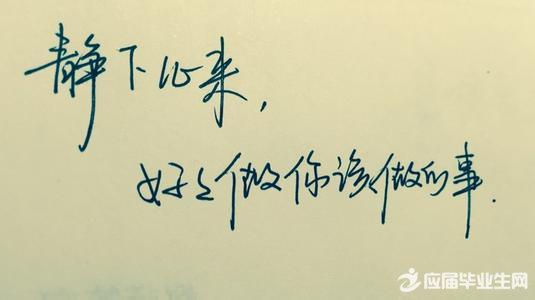 静下心来，
好好做你该做的事.
应届毕业生网